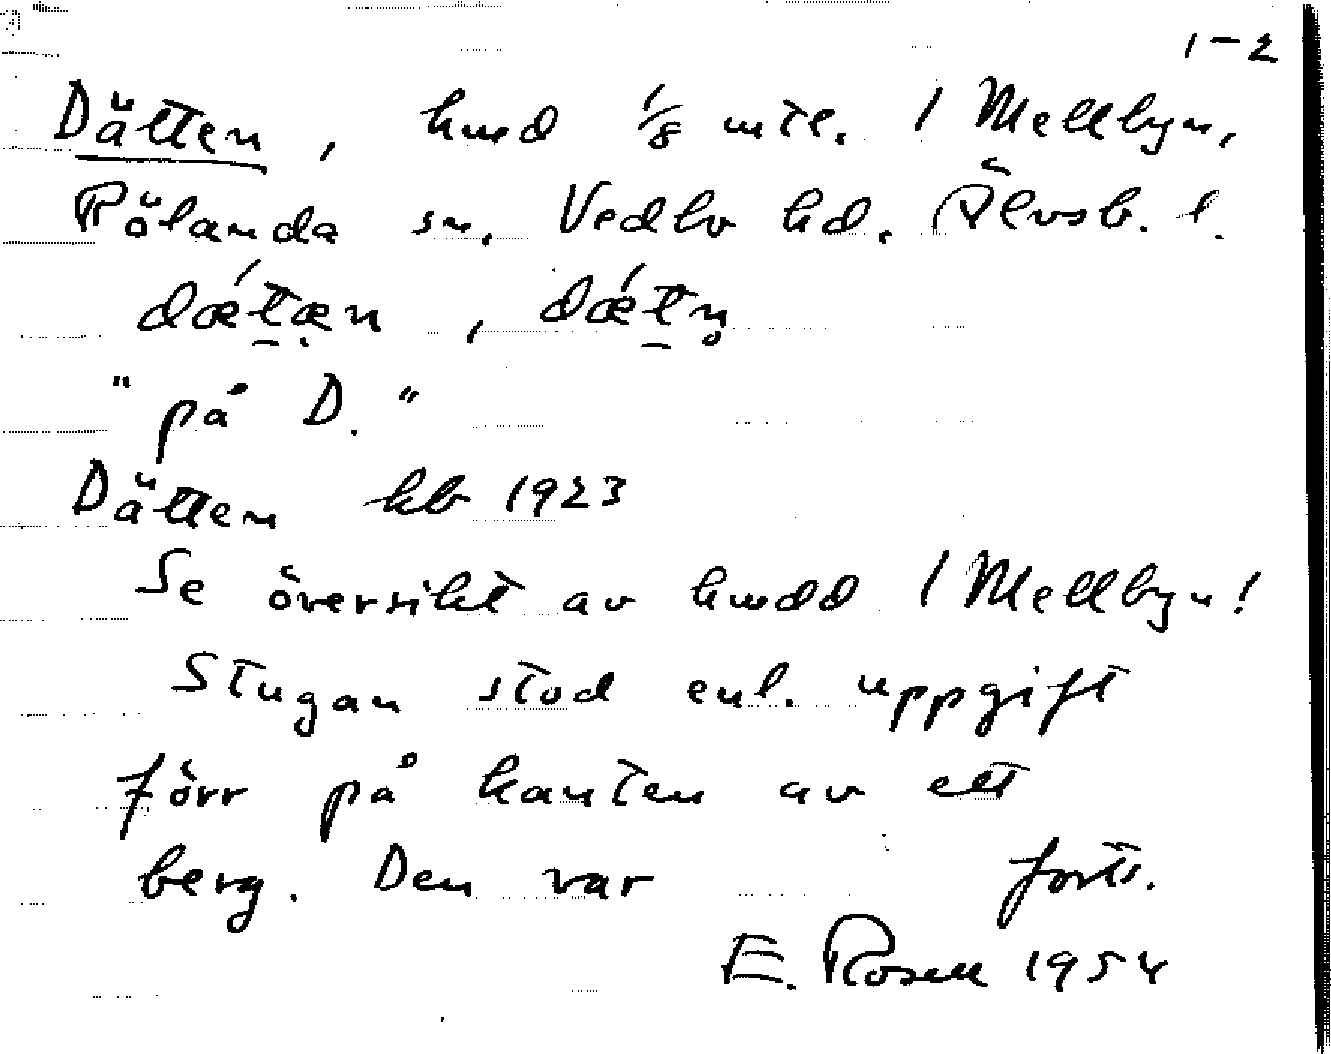 1-2
Dätten, hmd 1/8 mtl. 1 Mellbyn,
Rölanda sn. Vedbo hd. Älvsb. l.
dǽt̠æ̣n, dǽt̠n̥
"på D."
Dätten kb 1923
Se översikt av hmdd 1 Mellbyn!
Stugan stod enl. uppgift
förr på kanten av ett
berg. Den var forts.
E. Rosell 1954